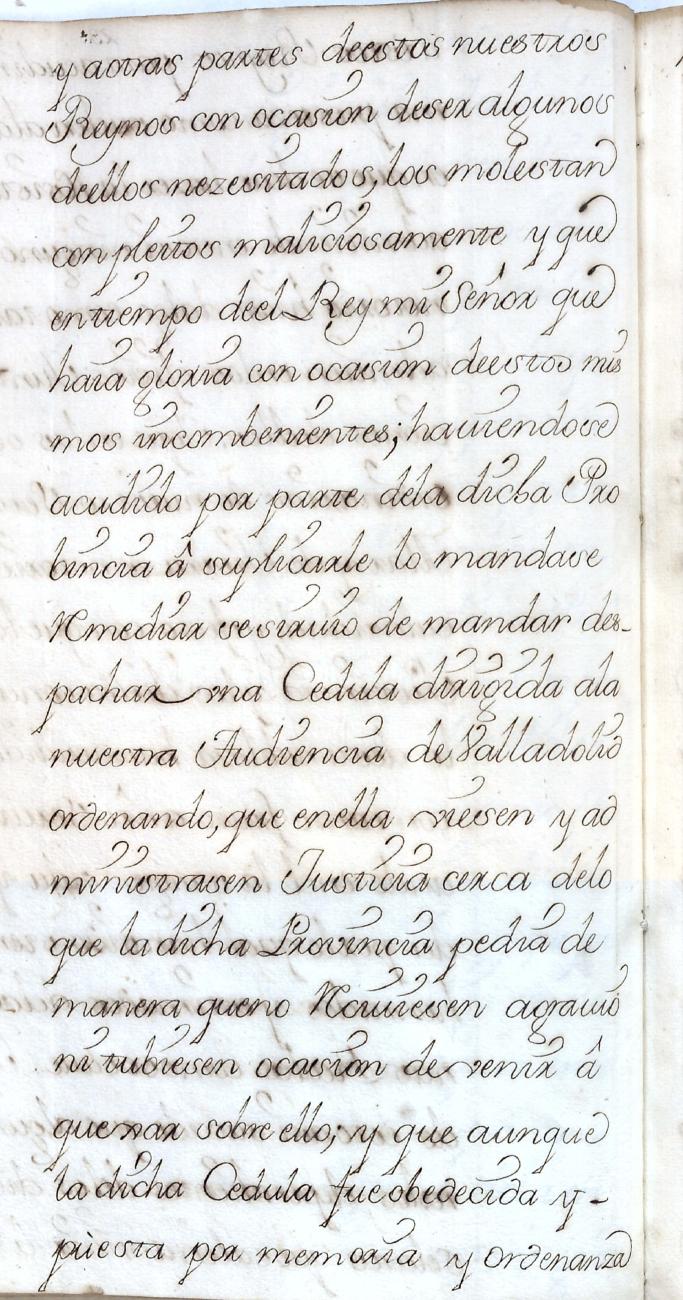 y aotras partes deestos nuestros
Reynos con ocasion deser algunos
deellos nezesitados, los molestan
con pleitos maliciosamente y que
en tiempo deel Rey mi Señor que
haia gloria con ocasion deestos mis
mos incombenientes; hauiendose
acudido por parte dela dicha Pro
bincia â suplicarle lo mandase
Remediar sesiruio de mandar des-
pachar vna Cedula dirigida ala
nuestra Audiencia de Valladolid
ordenando, que enella viesen y ad
ministrasen Justicia cerca delo
que la dicha Provincia pedia de
manera queno Reciuiesen agrauio
ni tubiesen ocasion de venir â
quexar sobre ello; y que aunque
la dicha Cedula fue obedecida y -
puesta por memoria y ordenanza